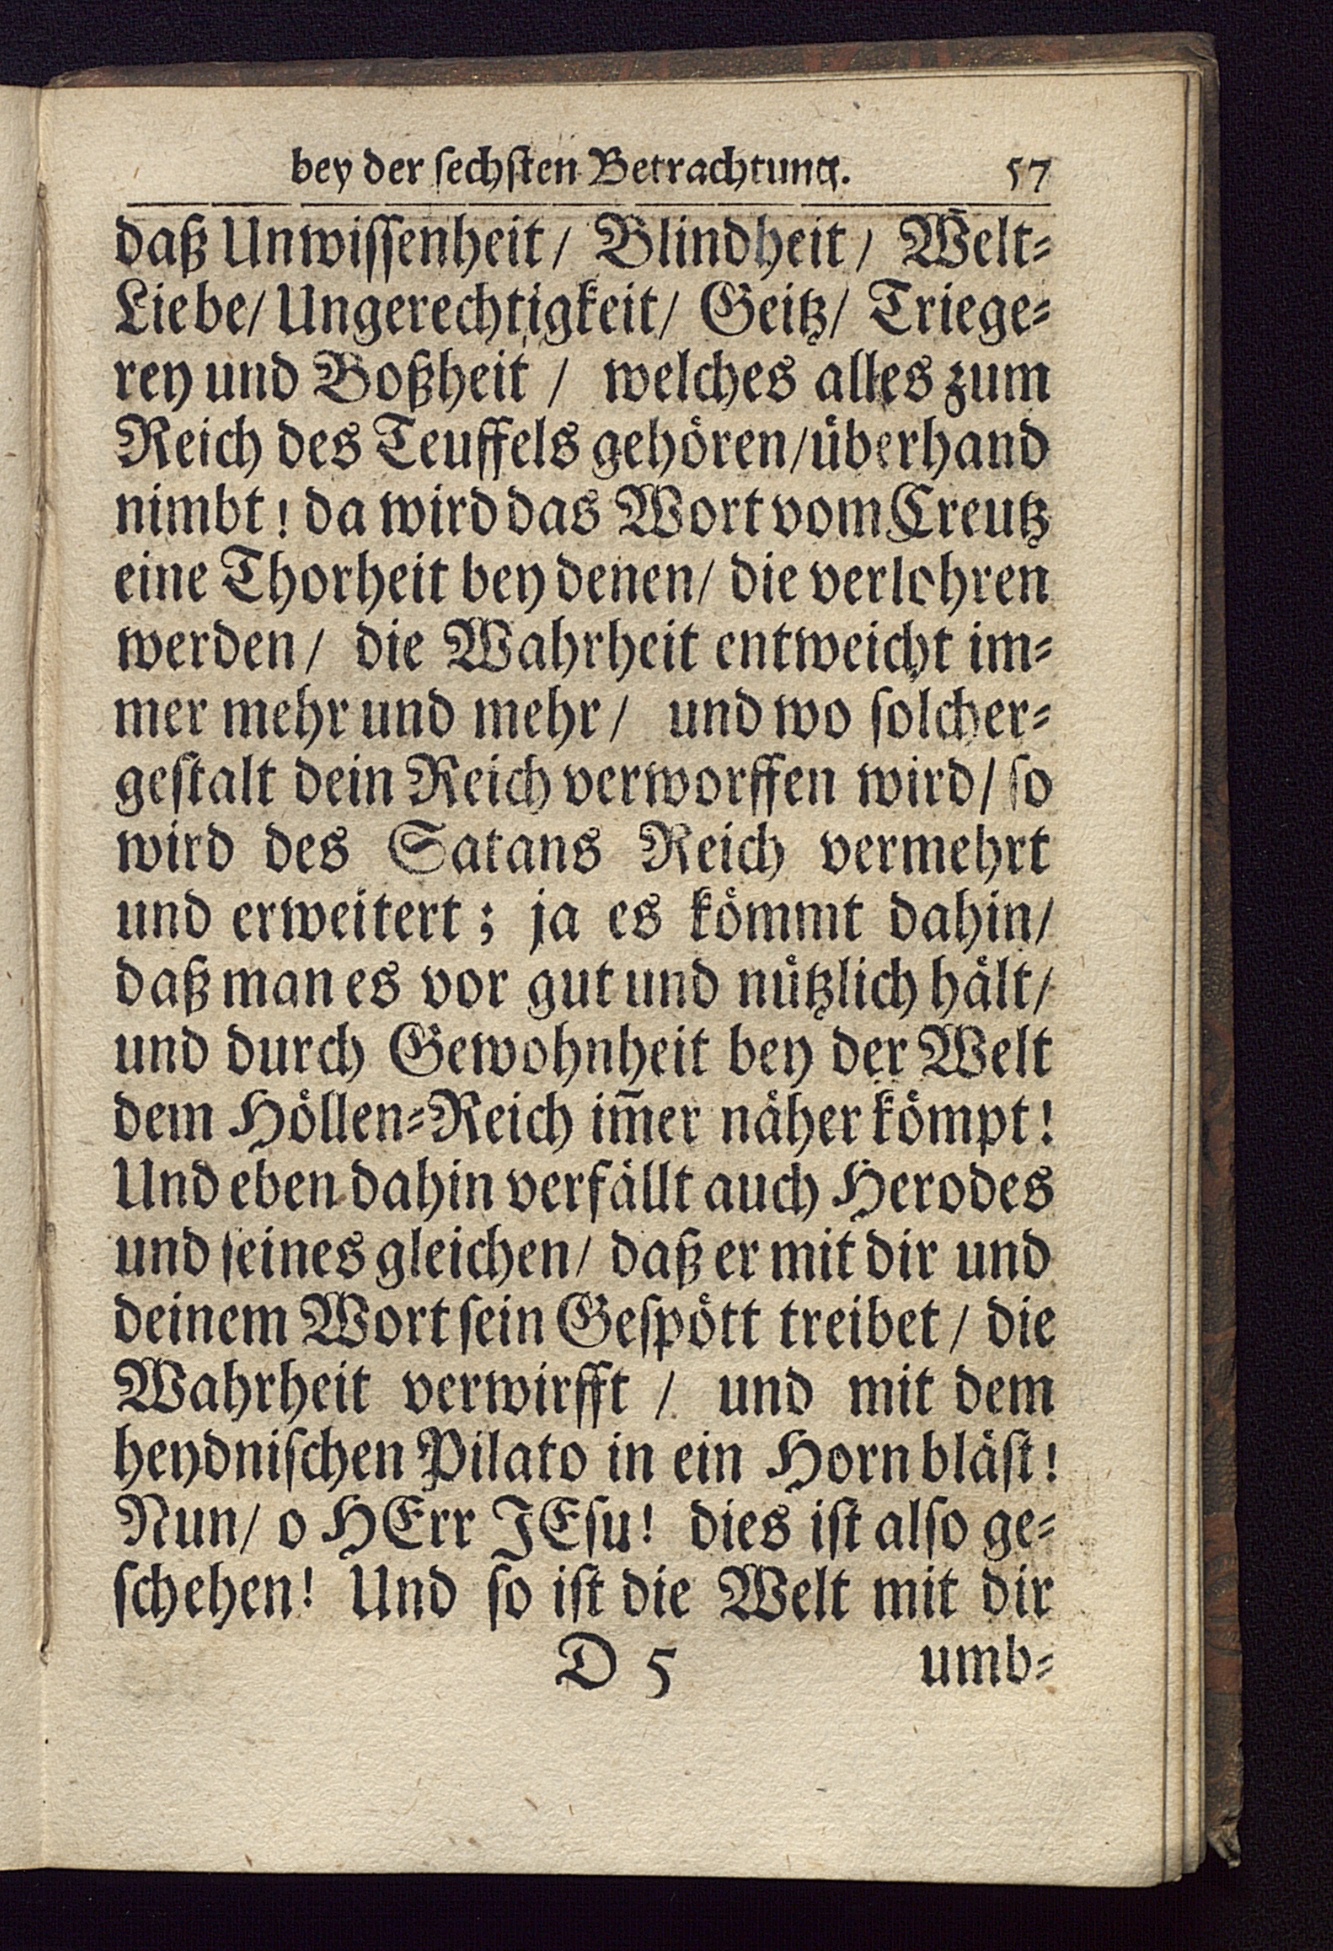 bey der ſechſten Betrachtung. 57
daß Unwiſſenheit/ Blindheit/ Welt-
Liebe/ Ungerechtigkeit/ Geitz/ Triege-
rey und Boßheit / welches alles zum
Reich des Teuffels gehören/überhand
nimbt! da wird das Wort vom Creutz
eine Thorheit bey denen/ die verlohren
werden/ die Wahrheit entweicht im-
mer mehr und mehr/ und wo ſolcher-
geſtalt dein Reich verworffen wird/ ſo
wird des Satans Reich vermehrt
und erweitert; ja es kömmt dahin/
daß man es vor gut und nützlich hält/
und durch Gewohnheit bey der Welt
dem Höllen-Reich im̄er näher kömpt!
Und eben dahin verfällt auch Herodes
und ſeines gleichen/ daß er mit dir und
deinem Wort ſein Geſpött treibet/ die
Wahrheit verwirfft / und mit dem
heydniſchen Pilato in ein Horn bläſt!
Nun/ o HErr JEſu! dies iſt alſo ge-
ſchehen! Und ſo iſt die Welt mit dir
D 5 umb-